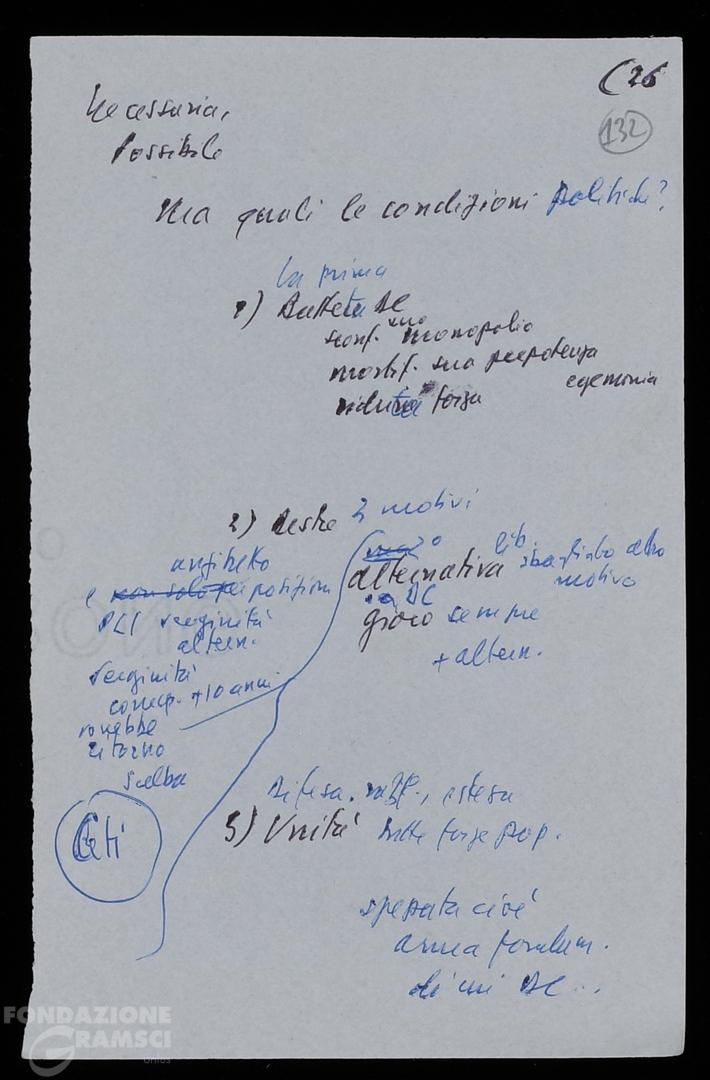 (26
132
Necessaria,
Possibile
Ma quali le condizioni politiche?
La prima
1) Battuta DC
sconf. suo monopolio
mortif. sua prepotenza
egemonia
ridotta forza
2) Destre 2 motivi
alternativa lib. sbagliato altro
motivo
DC
gioco sempre
+ altern.
anzitutto
e non solo per posizioni
PLI verginità
altern.
Verginità
comp. +10 anni
vorrebbe
ritorno
Scelba
Ceti
Difesa, raff., estesa
3) Unità tutte forze pop.
spezzata cioè
arma fondam.
di cui DC...
FONDAZIONE
GRAMSCI
onlus